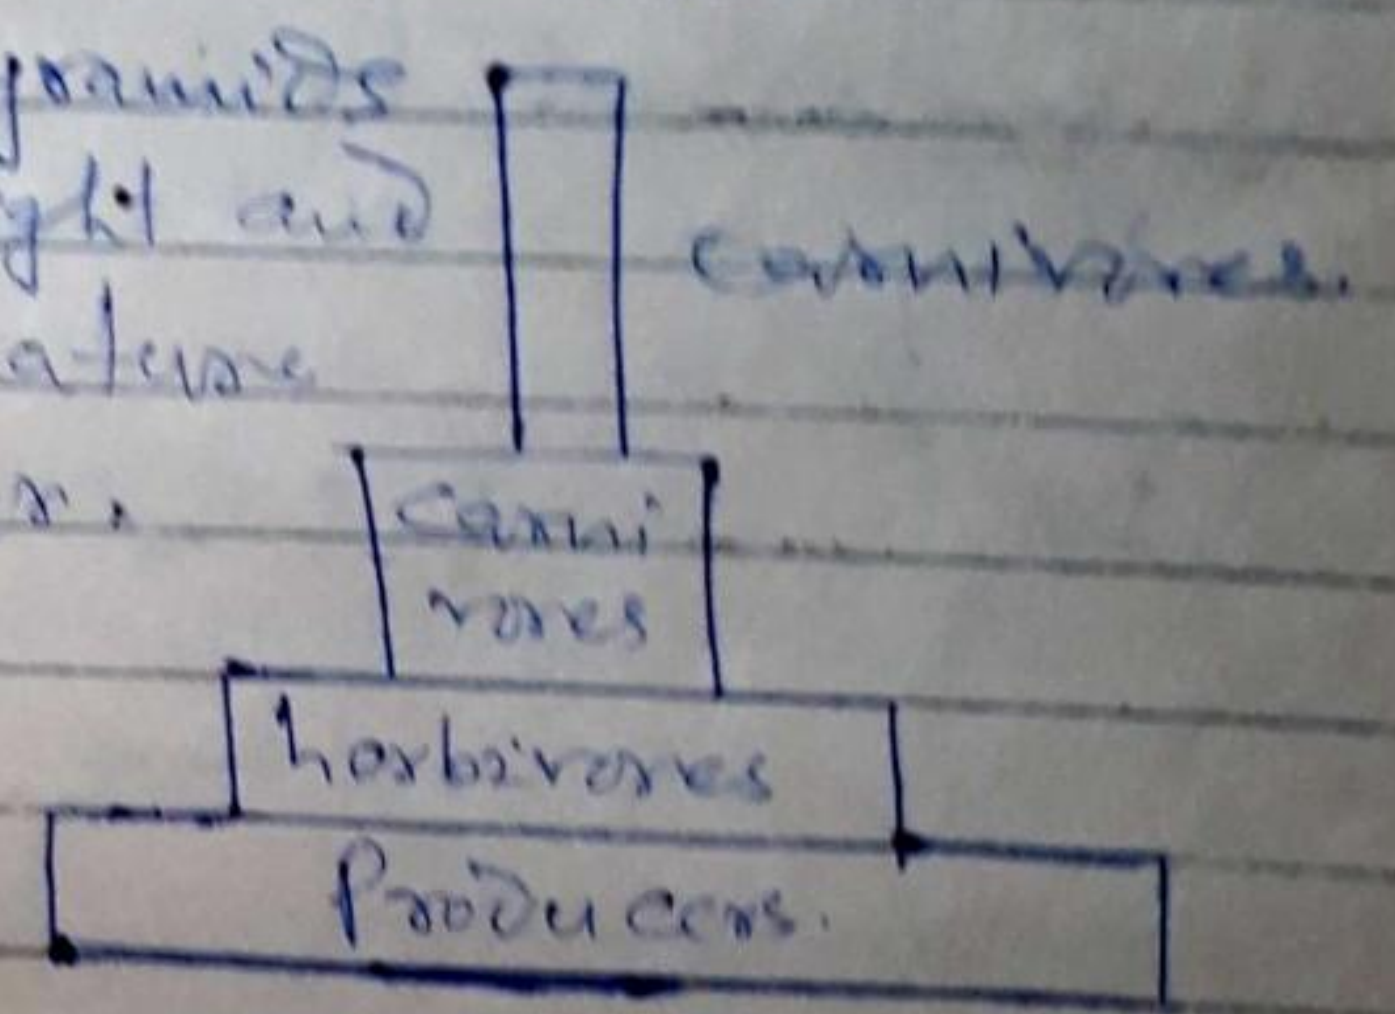 yramids
ght and
ature
r.
carnivores.
carni
vores
herbivores
Producers.